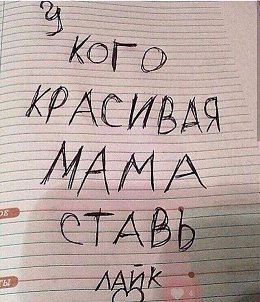 У
КОГО
КРАСИВАЯ
МАМА
СТАВЬ
ЛАЙК